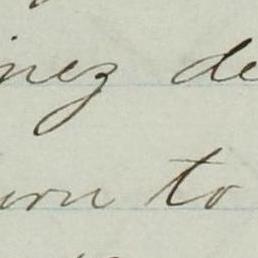 inez de
urn to